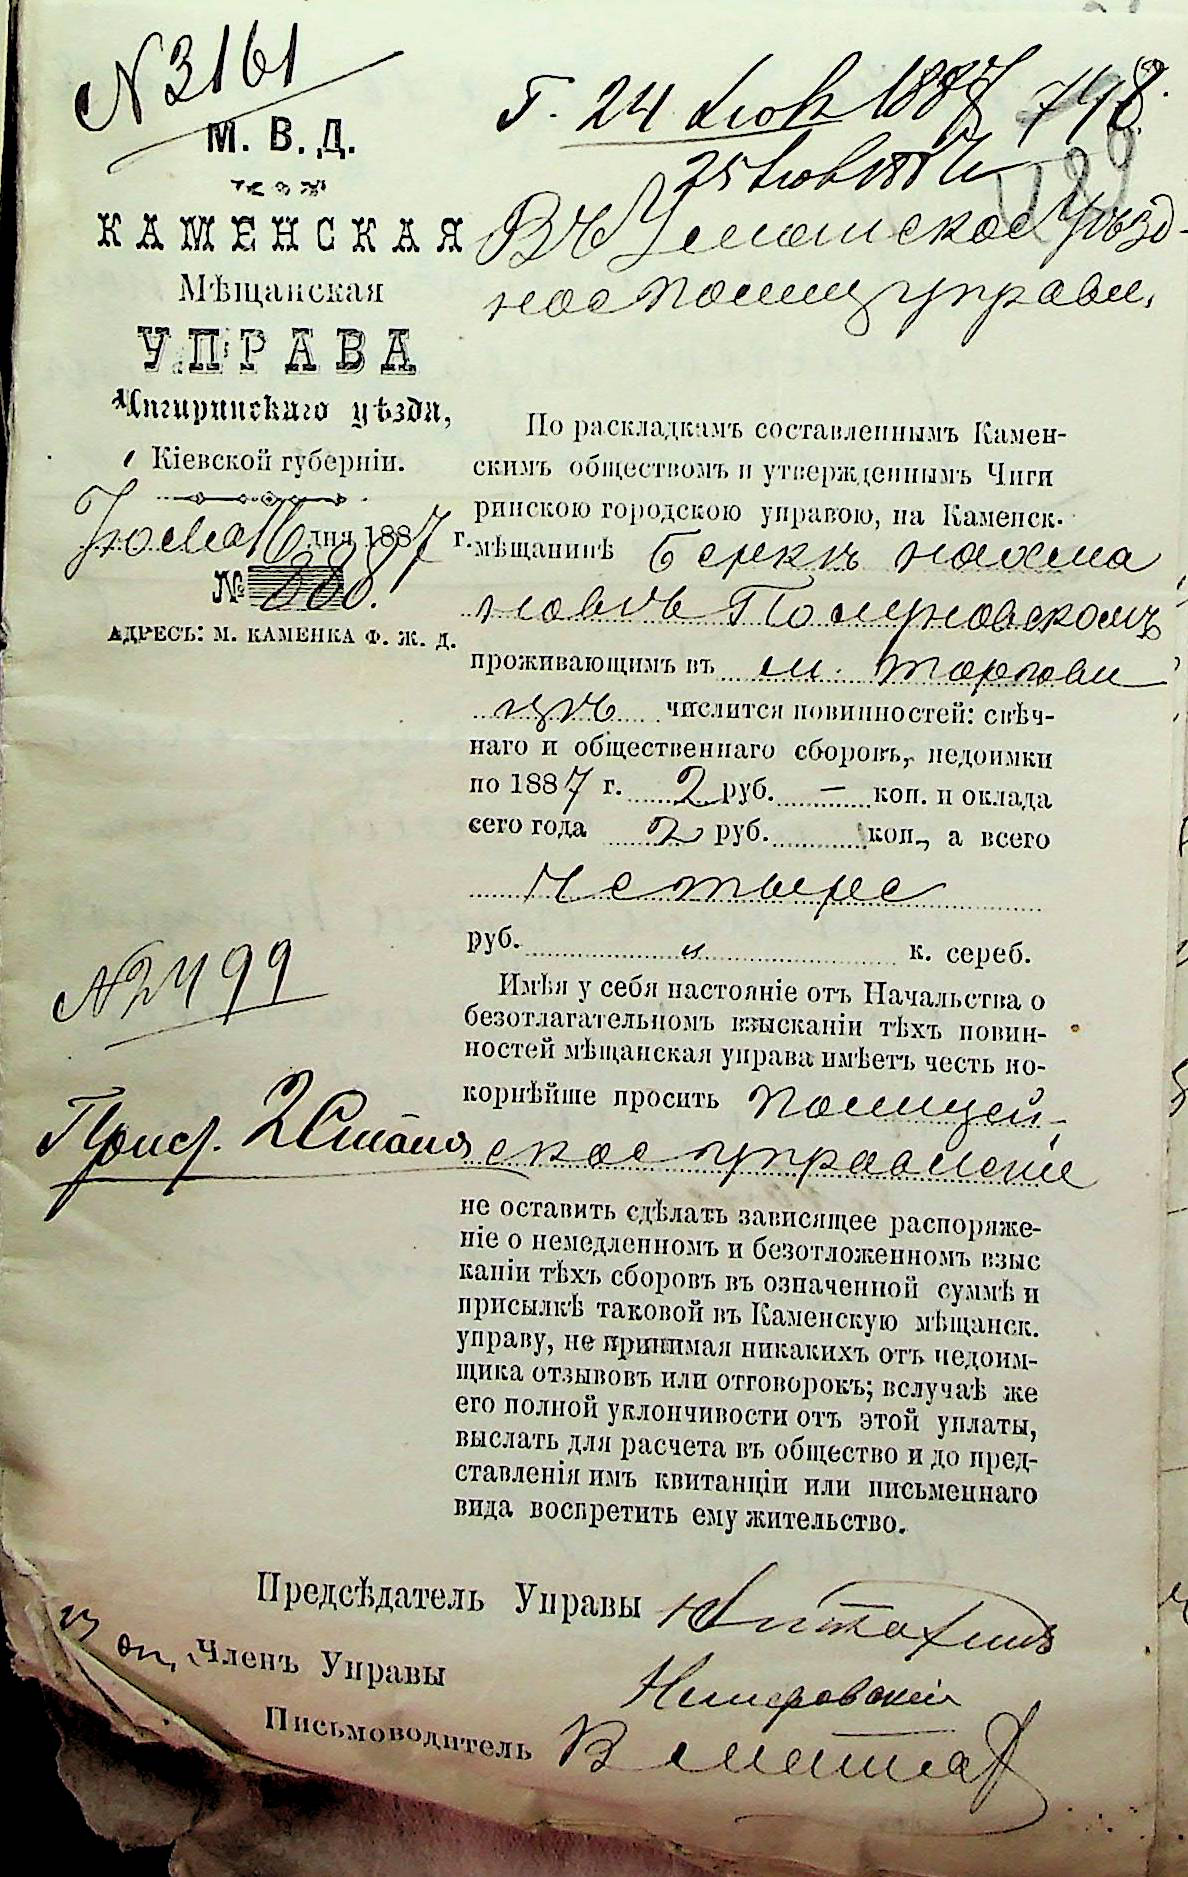 № 3161
М. В. Д.
КАМЕНСКАЯ
Мѣщанская
УПРАВА
Чигиринскаго уѣзда,
Кіевской губерніи.
Іюля 16 дня 1887 г.
№ 388.
АДРЕСЪ: М. КАМЕНКА Ф. Ж. Д.
24 1887 748.
25
Въ Уманское Уѣзд-
ное полиц управл.
По раскладкамъ составленнымъ Камен-
скимъ обществомъ и утвержденнымъ Чиги
ринскою городскою управою, на Каменск.
мѣщанинѣ Беркѣ Нахма
новѣ
проживающимъ въ м. Торгови
цѣ числится повинностей: свѣч-
наго и общественнаго сборовъ, недоимки
по 1887 г. 2 руб. — коп. и оклада
сего года 2 руб. коп., а всего
Четыре
руб. „ к. сереб.
Имѣя у себя настояніе отъ Начальства о
безотлагательномъ взысканіи тѣхъ повин-
ностей мѣщанская управа имѣетъ честь по-
корнѣйше просить Полицей-
ское управленіе
не оставить сдѣлать зависящее распоряже-
ніе о немедленномъ и безотложенномъ взыс
каніи тѣхъ сборовъ въ означенной суммѣ и
присылкѣ таковой въ Каменскую мѣщанск.
управу, не принимая никакихъ отъ недоим-
щика отзывовъ или отговорокъ; вслучаѣ же
его полной уклончивости отъ этой уплаты,
выслать для расчета въ общество и до пред-
ставленія имъ квитанціи или письменнаго
вида воспретить ему жительство.
№ 2499
2
Предсѣдатель Управы
Членъ Управы
Письмоводитель